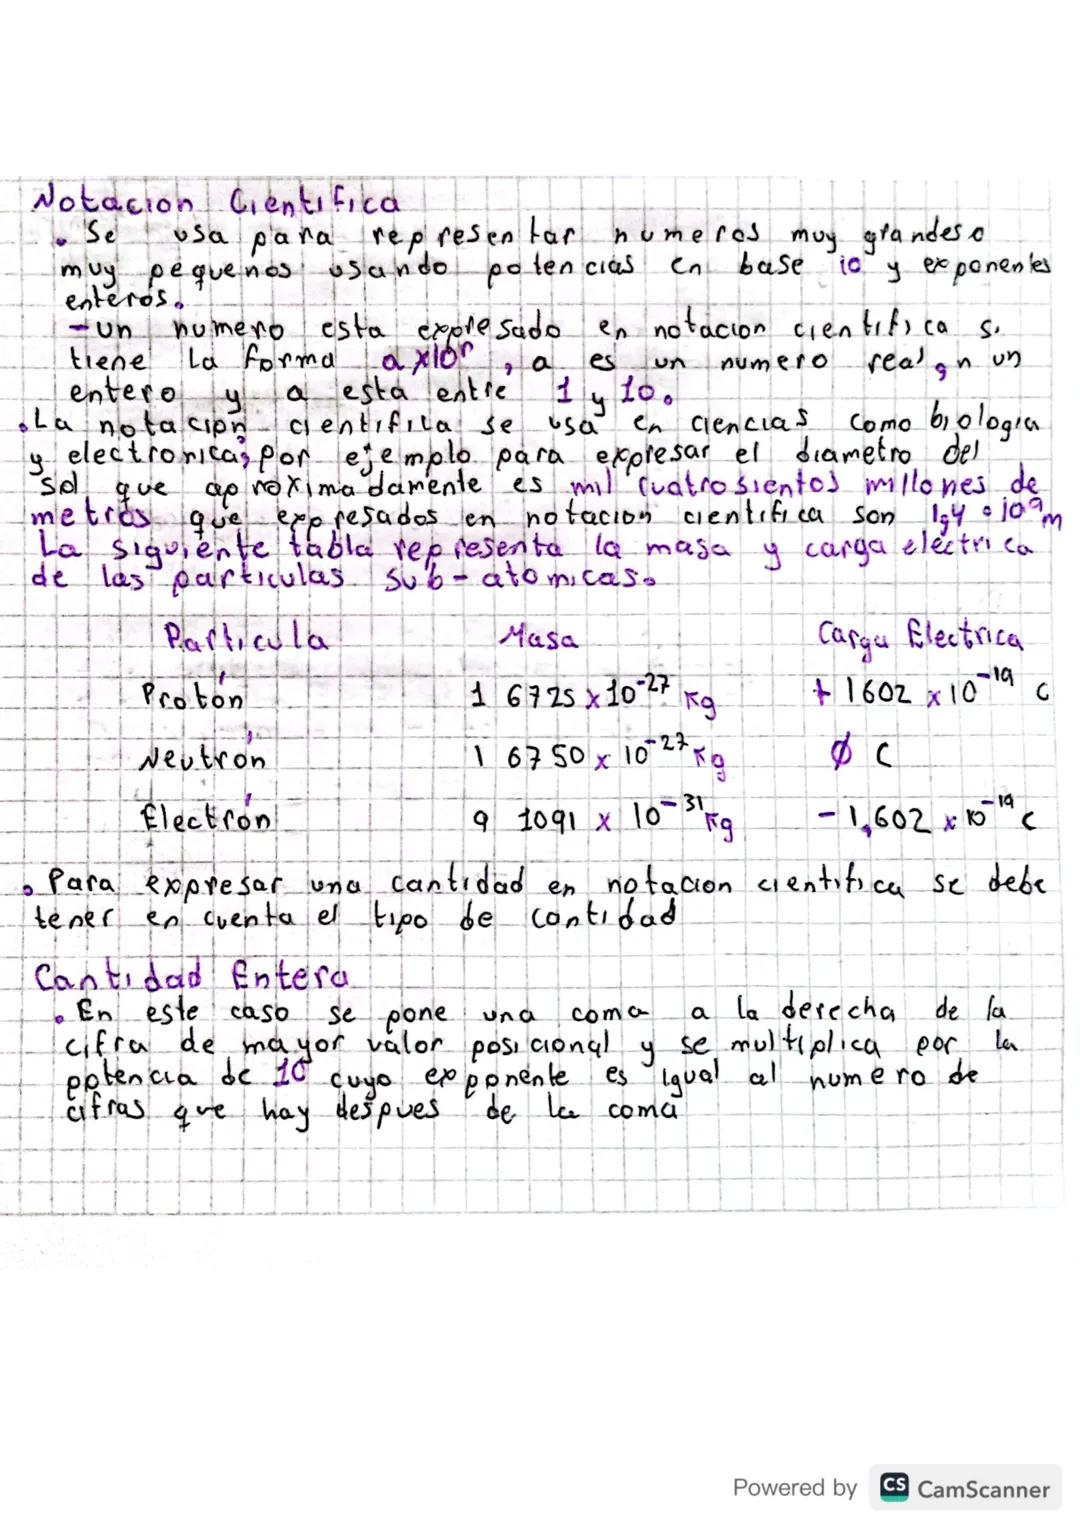 Notacion Cientifica
• Se usa para representar numeros muy grandes o
muy pequenos usando potencias en base 10 y exponentes
enteros.
- un numero esta expresado en notacion cientifica si
tiene la forma a x10ⁿ, a es un numero real, n un
entero y a esta entre 1 y 10.
• La notacion cientifica se usa en ciencias como biologia
y electronica, por ejemplo para expresar el diametro del
sol que aproximadamente es mil cuatrosientos millones de
metros que expresados en notacion cientifica son 1,4 • 10⁹m
La siguiente tabla representa la masa y carga eléctrica
de las particulas sub-atomicas.
Particula Masa Carga Electrica
Protón 1 6725 x 10⁻²⁷ Kg + 1602 x 10⁻¹⁹ C
Neutrón 1 6750 x 10⁻²⁷ Kg Ø C
Electrón 9 1091 x 10⁻³¹ Kg - 1,602 x 10⁻¹⁹ C
• Para expresar una cantidad en notacion cientifica se debe
tener en cuenta el tipo de cantidad
Cantidad Entera
• En este caso se pone una coma a la derecha de la
cifra de mayor valor posicional y se multiplica por la
potencia de 10 cuyo exponente es igual al numero de
cifras que hay despues de la coma
Powered by CS CamScanner